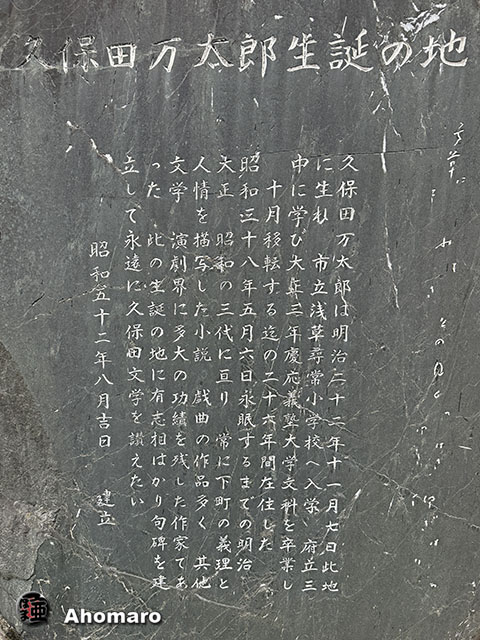 久保田万太郎生誕の地
久保田万太郎は明治二十二年十一月七日此地
に生れ 市立浅草尋常小学校へ入学、府立三
中に学び大正三年慶応義塾大学文科を卒業し
十月移転する迄の二十六年間在住した
昭和三十八年五月六日永眠するまでの明治
大正 昭和の三代に亘り 常に下町の義理と
人情を描写した小説 戯曲の作品多く 其他
文学 演劇界に多大の功績を残した作家であ
った 此の生誕の地に有志相はかり句碑を建
立して永遠に久保田文学を讃えたい
昭和五十二年八月吉日 建立
Ahomaro